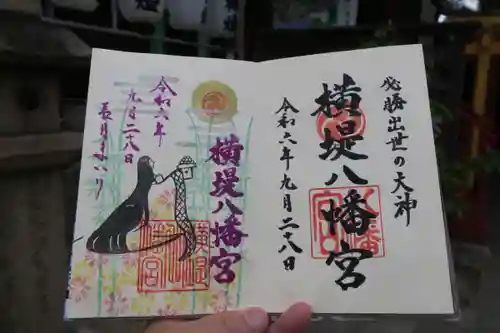 必勝出世の大神
横堤八幡宮
令和六年九月二十八日
横堤八幡宮
令和六年
九月二十八日
長月まいり